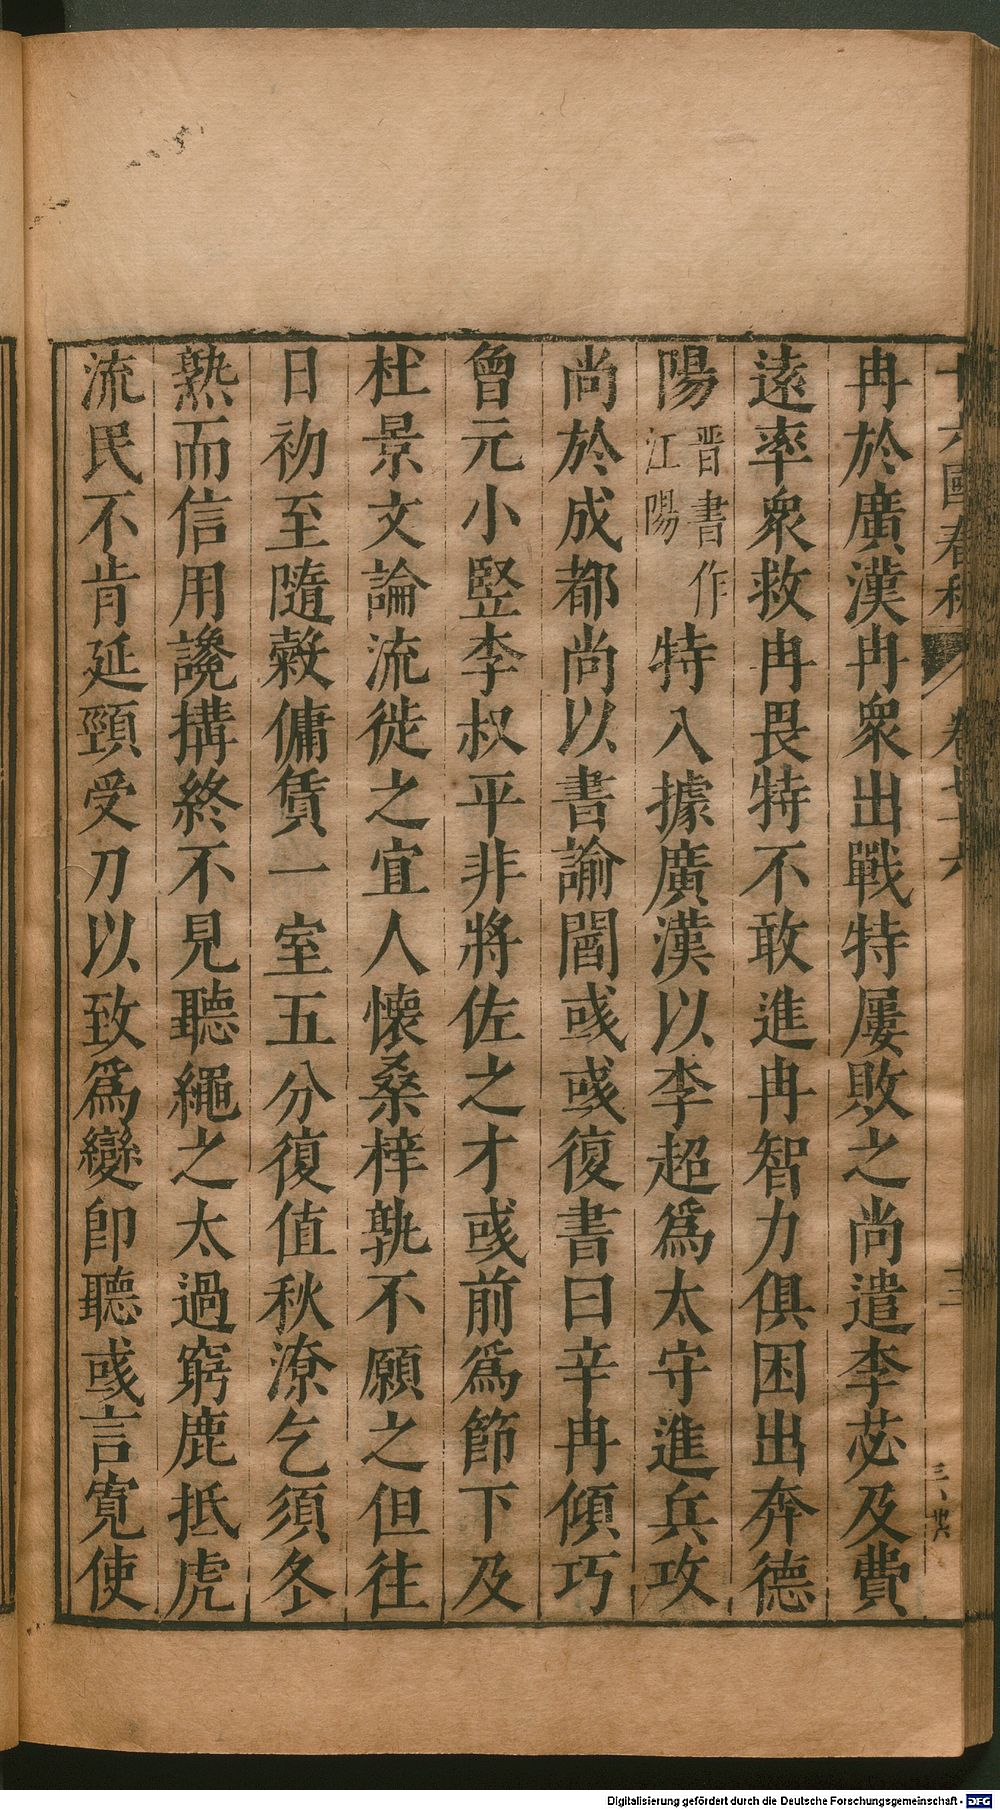 十六國春秋 卷七十六
冉於廣漢冉衆出戰特屢敗之尚遣李苾及費
遠率衆救冉畏特不敢進冉智力俱困出奔德
陽晋書作江陽特入據廣漢以李超爲太守進兵攻
尚於成都尚以書諭閻彧彧復書曰辛冉傾巧
曾元小竪李叔平非將佐之才彧前爲節下及
杜景文論流徙之宜人懷桑梓孰不願之但往
日初至隨糓傭賃一室五分復值秋潦乞須冬
熟而信用讒搆終不見聽繩之太過窮鹿抵虎
流民不肯延頸受刀以致爲變卽聽彧言寬使
Digitalisierung gefördert durch die Deutsche Forschungsgemeinschaft - DFG